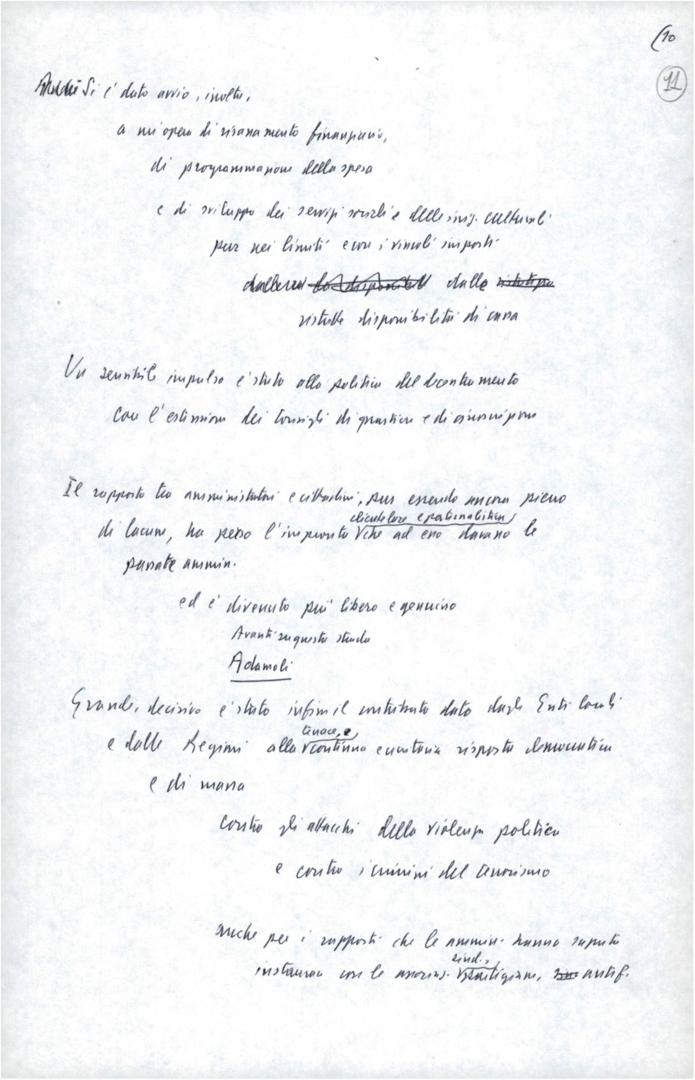 10
11
Si é dato avvio, inoltre,
a un'opera di risanamento finanziario,
di programmazione della spesa
e di sviluppo dei servizi sociali e delle culturali
pur nei limiti e con i vincoli imposti
dalle
ristrette disponibilità di cassa
Un sensibile impulso é stato alla politica del decentramento
con l'estensione dei Consigli di quartiere e di circoscrizione
Il rapporto tra amministratori e cittadini, pur essendo ancora pieno
clientelare e paternalistica
di lacune, ha perso l'impronta che ad esso davano le
passate ammin.
ed é divenuto piú libero e genuino
Avanti su questa strada
Adamoli
Grande, decisivo é stato infine il contributo dato dagli Enti locali
tenace, e
e dalle Regioni alla continua risposta democratica
e di massa
contro gli attacchi della violenza politica
e contro i crimini del terrorismo
anche per i rapporti che le ammin. hanno saputo
sind.,
instaurare con le partigiane, antif.